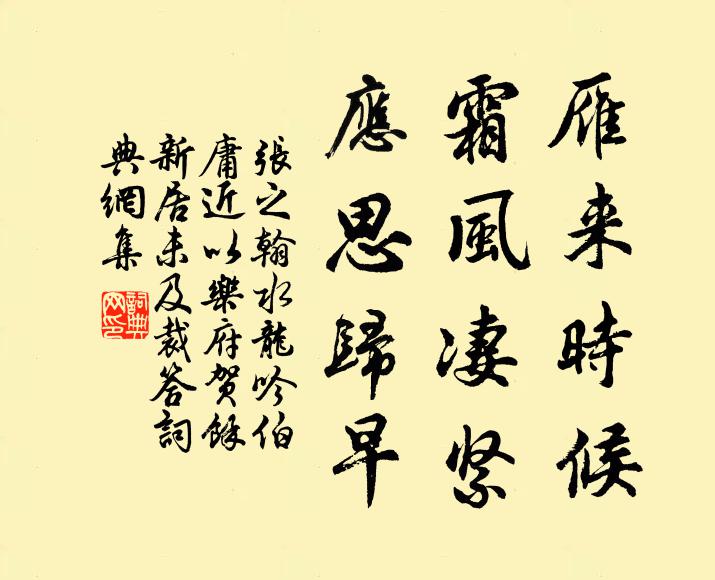 雁来時候
霜風凄紧
應思歸早
張之翰水龍吟伯
庸近以樂府贺餘
新居未及裁答詞
典網集
詞典网印